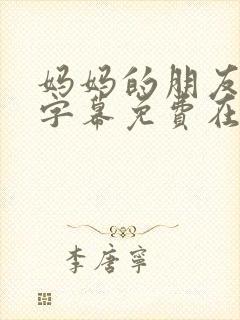 妈妈的朋友
字幕免费在
李唐宁